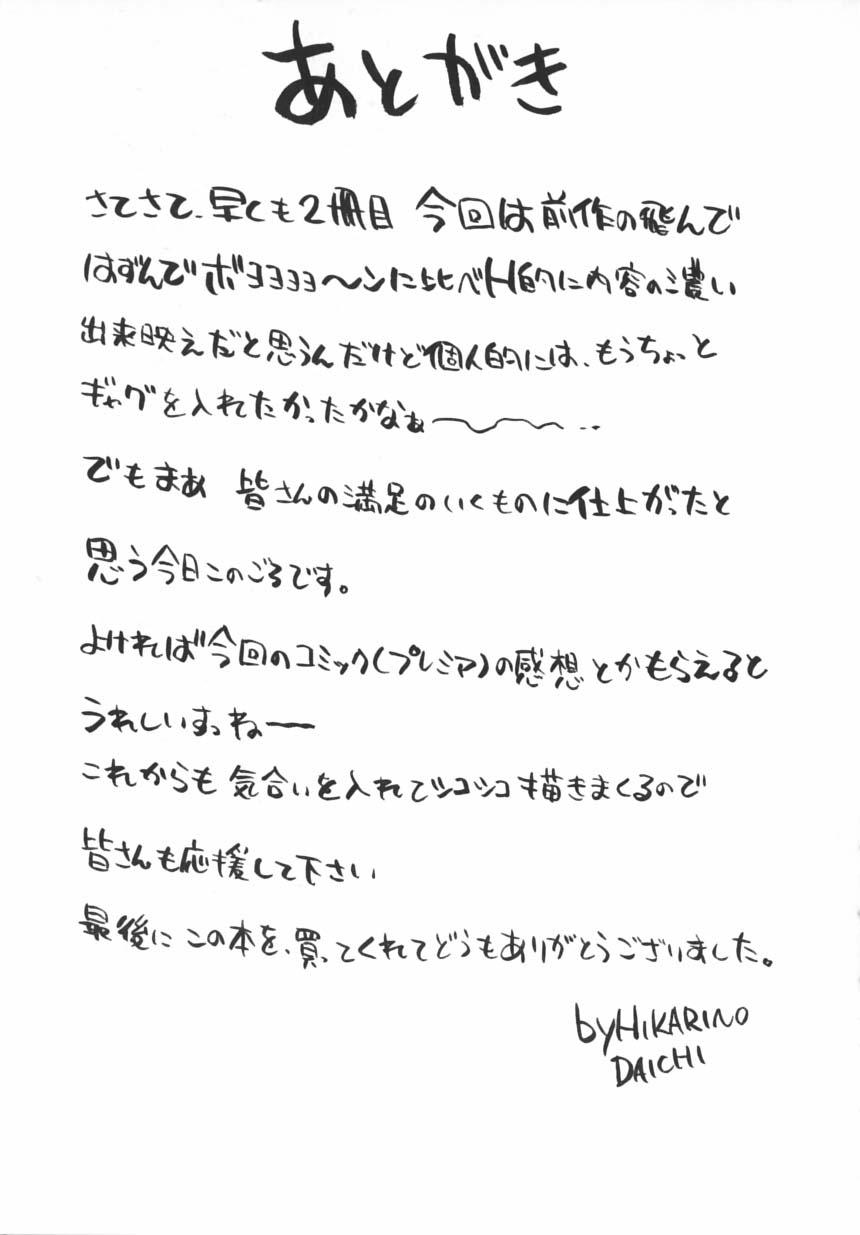 あとがき
さてさて、早くも2冊目 今回は前作の飛んで
はずんでボヨヨヨヨ〜ンに比べH的に内容の濃い
出来映えだと思うんだけど個人的には、もうちょっと
ギャグを入れたかったかなぁ〜〜‥
でもまあ 皆さんの満足のいくものに仕上がったと
思う今日このごろです。
よければ今回のコミック(プレミア)の感想とかもらえると
うれしいすっねー
これからも気合いを入れてシコシコ描きまくるので
皆さんも応援して下さい
最後に この本を、買ってくれてどうもありがとうございました。
by HIKARINO
DAICHI